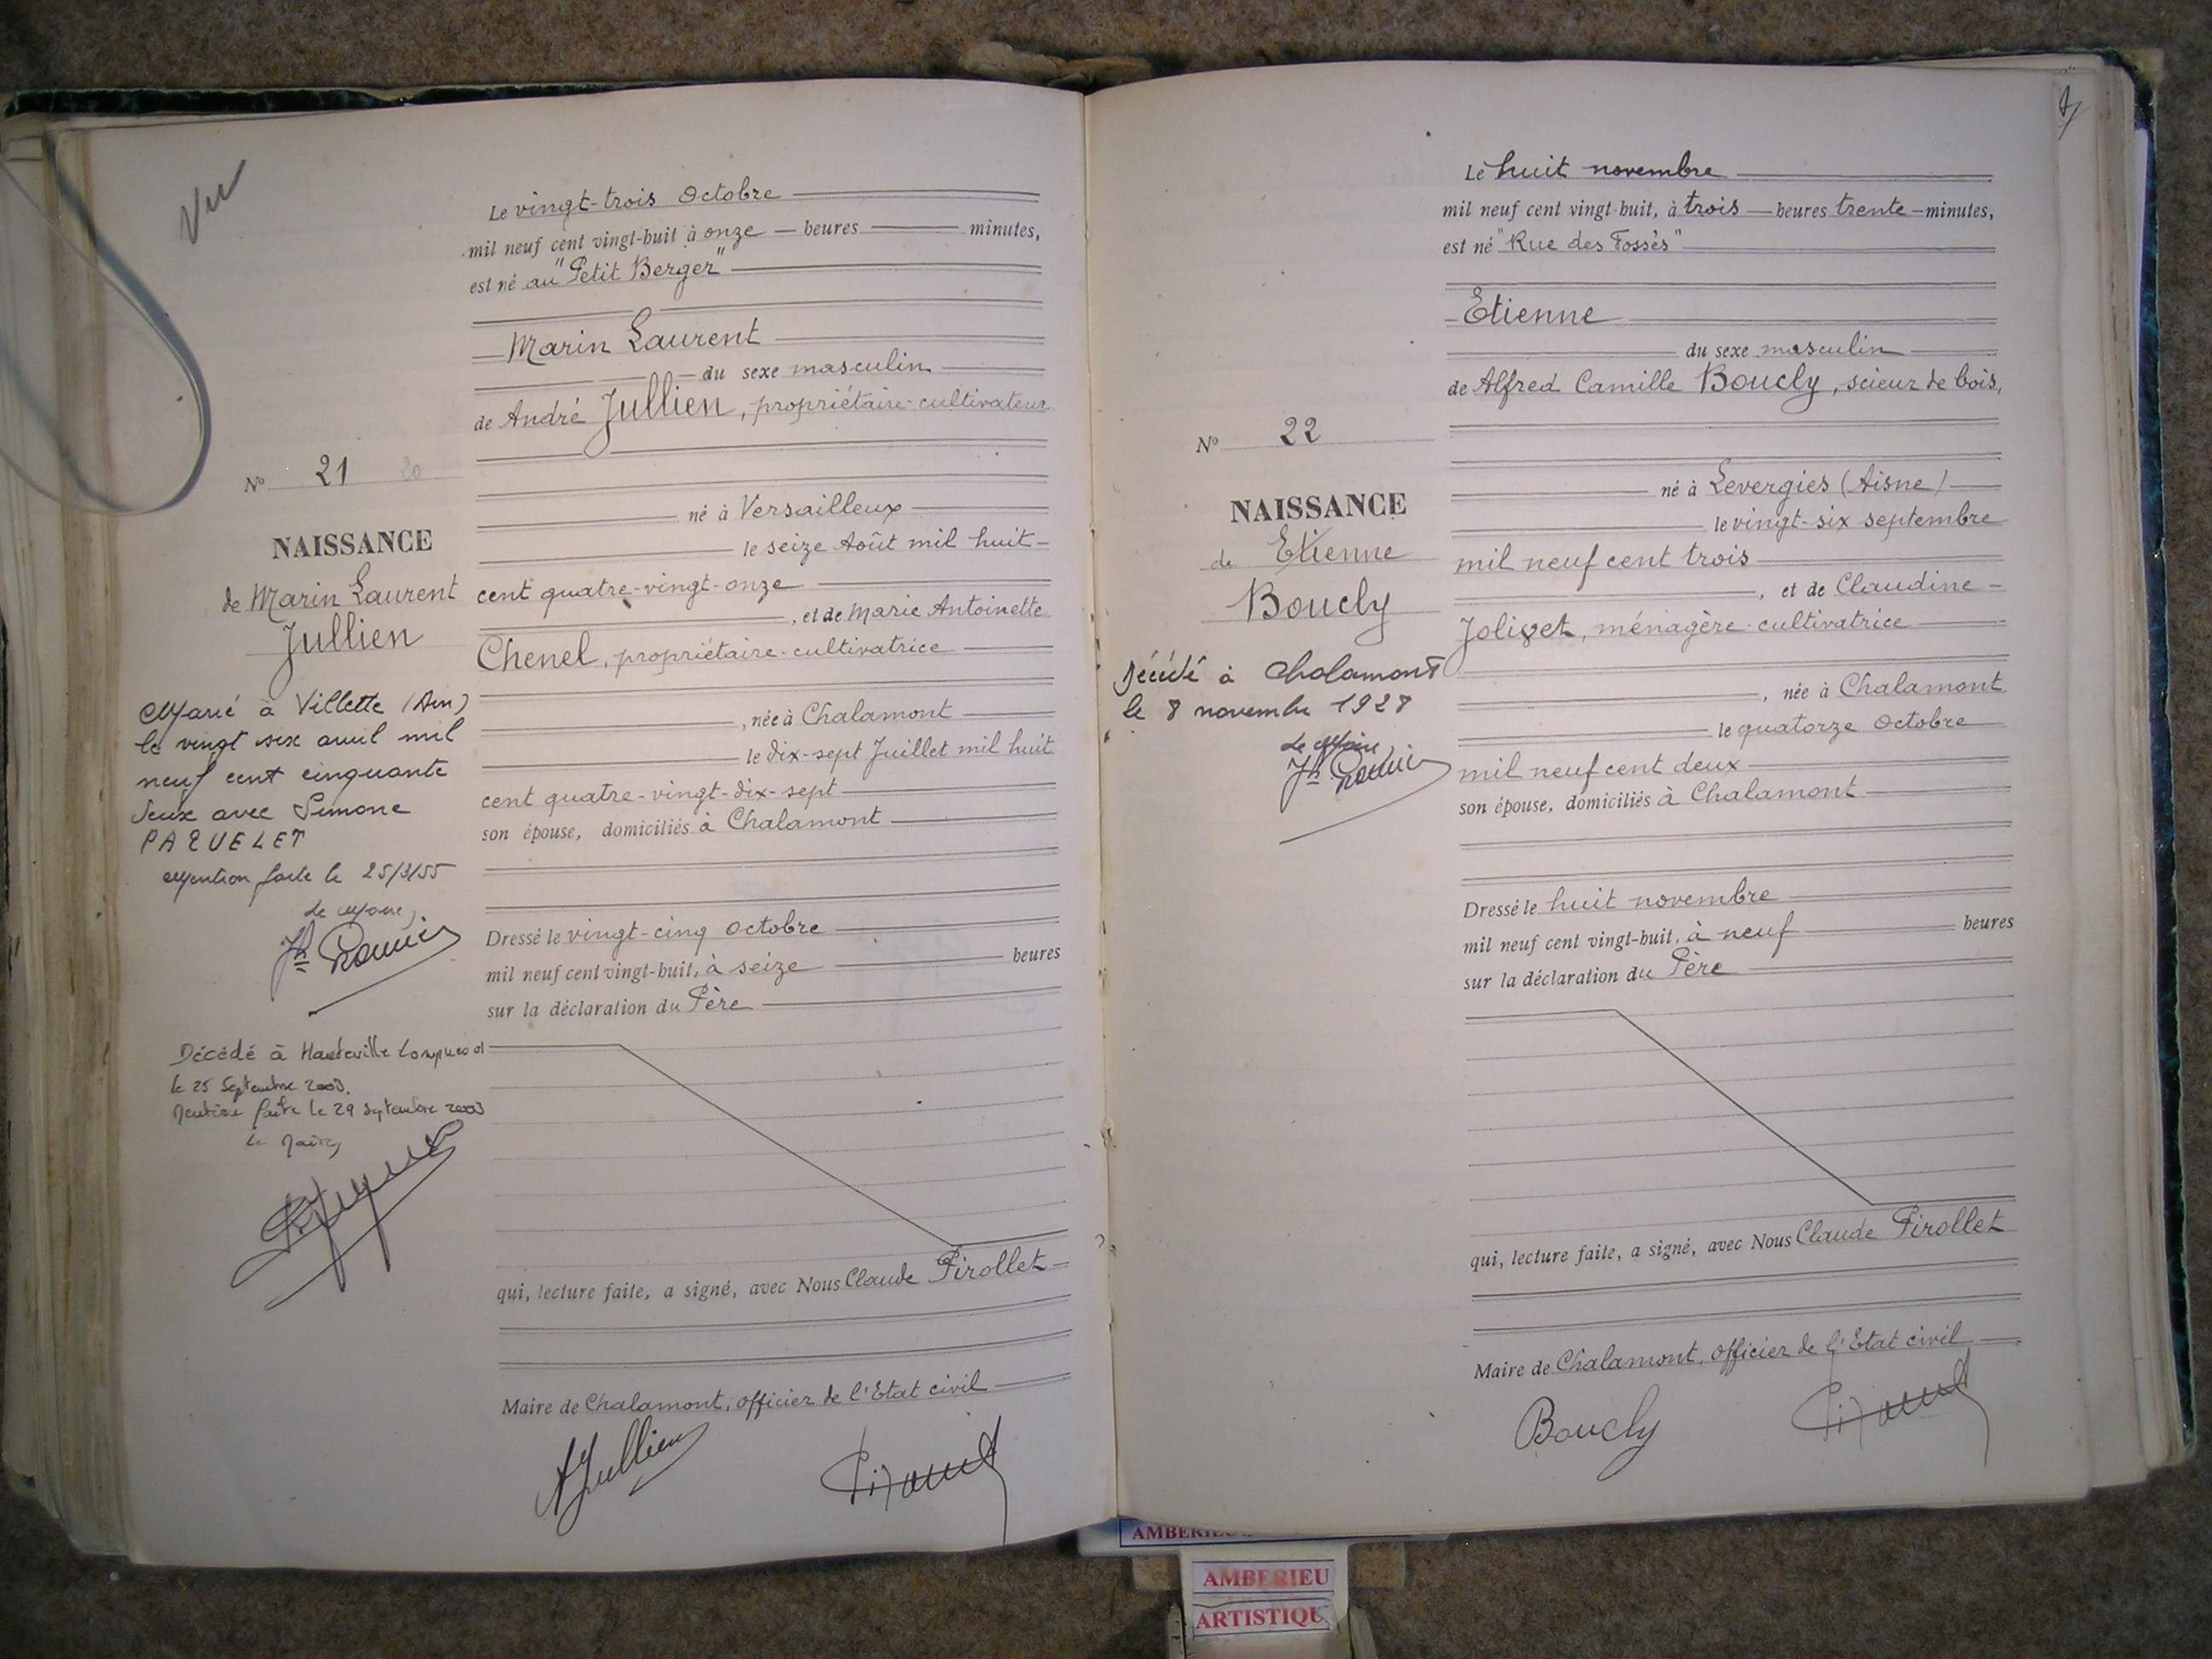 Vu
Le vingt-trois Octobre
mil neuf cent vingt-huit à onze heures minutes,
est né au "Petit Berger"
Marin Laurent
du sexe masculin
de André Jullien, propriétaire-cultivateur
né à Versailleux
le seize Août mil huit-
cent quatre-vingt-onze
, et de Marie Antoinette
Chenel, propriétaire-cultivatrice
, née à Chalamont
le dix-sept Juillet mil huit
cent quatre-vingt-dix-sept
son épouse, domiciliés à Chalamont
Dressé le vingt-cinq Octobre
mil neuf cent vingt-huit, à seize heures
sur la déclaration du Père
qui, lecture faite, a signé, avec Nous Claude Pirollet
Maire de Chalamont, officier de l'Etat civil
AJullien
N° 21 20
NAISSANCE
de Marin Laurent
Jullien
Marié à Villette (Ain)
le vingt six avril mil
neuf cent cinquante
deux avec Simone
PAQUELET
Mention faite le 25/3/55
Le Maire,
Décédé à Hauteville Lompnes 01
le 25 Septembre 2003.
Mention faite le 29 Septembre 2003
Le Maire,
Le huit novembre
mil neuf cent vingt-huit, à trois heures trente minutes,
est né "Rue des Fossés"
Etienne
du sexe masculin
de Alfred Camille Boucly, scieur de bois,
né à Levergies (Aisne)
le vingt-six septembre
mil neuf cent trois
, et de Claudine
Jolivet, ménagère-cultivatrice
, née à Chalamont
le quatorze Octobre
mil neuf cent deux
son épouse, domiciliés à Chalamont
Dressé le huit novembre
mil neuf cent vingt-huit, à neuf heures
sur la déclaration du Père
qui, lecture faite, a signé, avec Nous Claude Pirollet
Maire de Chalamont, officier de l'Etat civil
Boucly
N° 22
NAISSANCE
de Etienne
Boucly
Décédé à Chalamont
le 8 novembre 1928
Le Maire,
AMBERIEU
AMBERIEU
ARTISTIQU